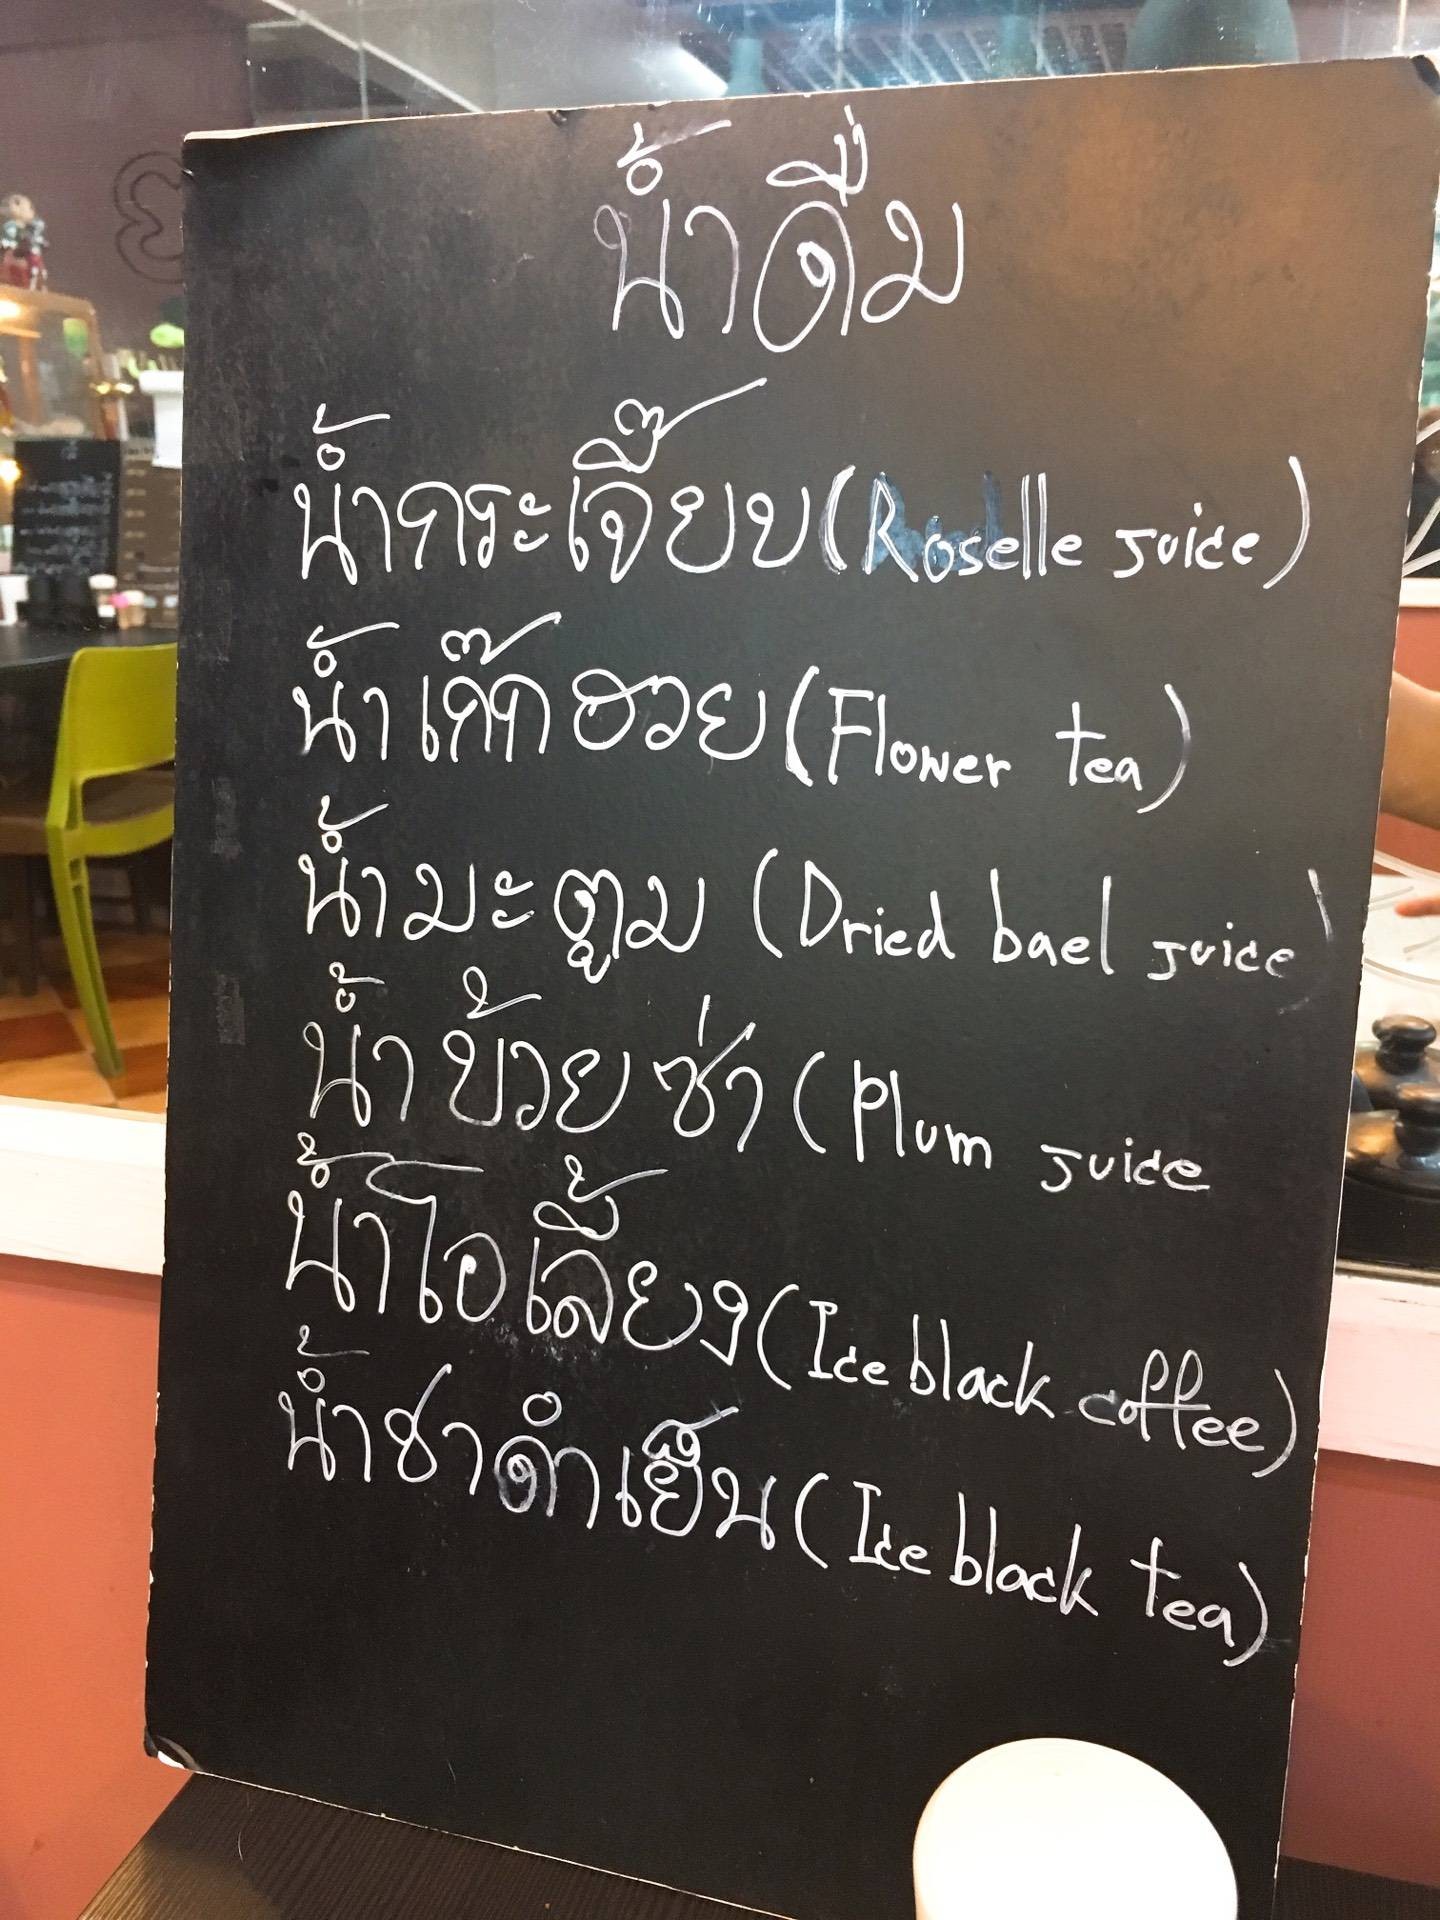 น้ำดื่ม
น้ำกระเจี๊ยบ (Roselle juice)
น้ำเก๊กฮวย (Flower tea)
น้ำมะตูม (Dried bael juice)
น้ำบ้วยซ่า (Plum juice
น้ำโอเลี้ยง (Ice black coffee)
น้ำชาดำเย็น (Ice black tea)